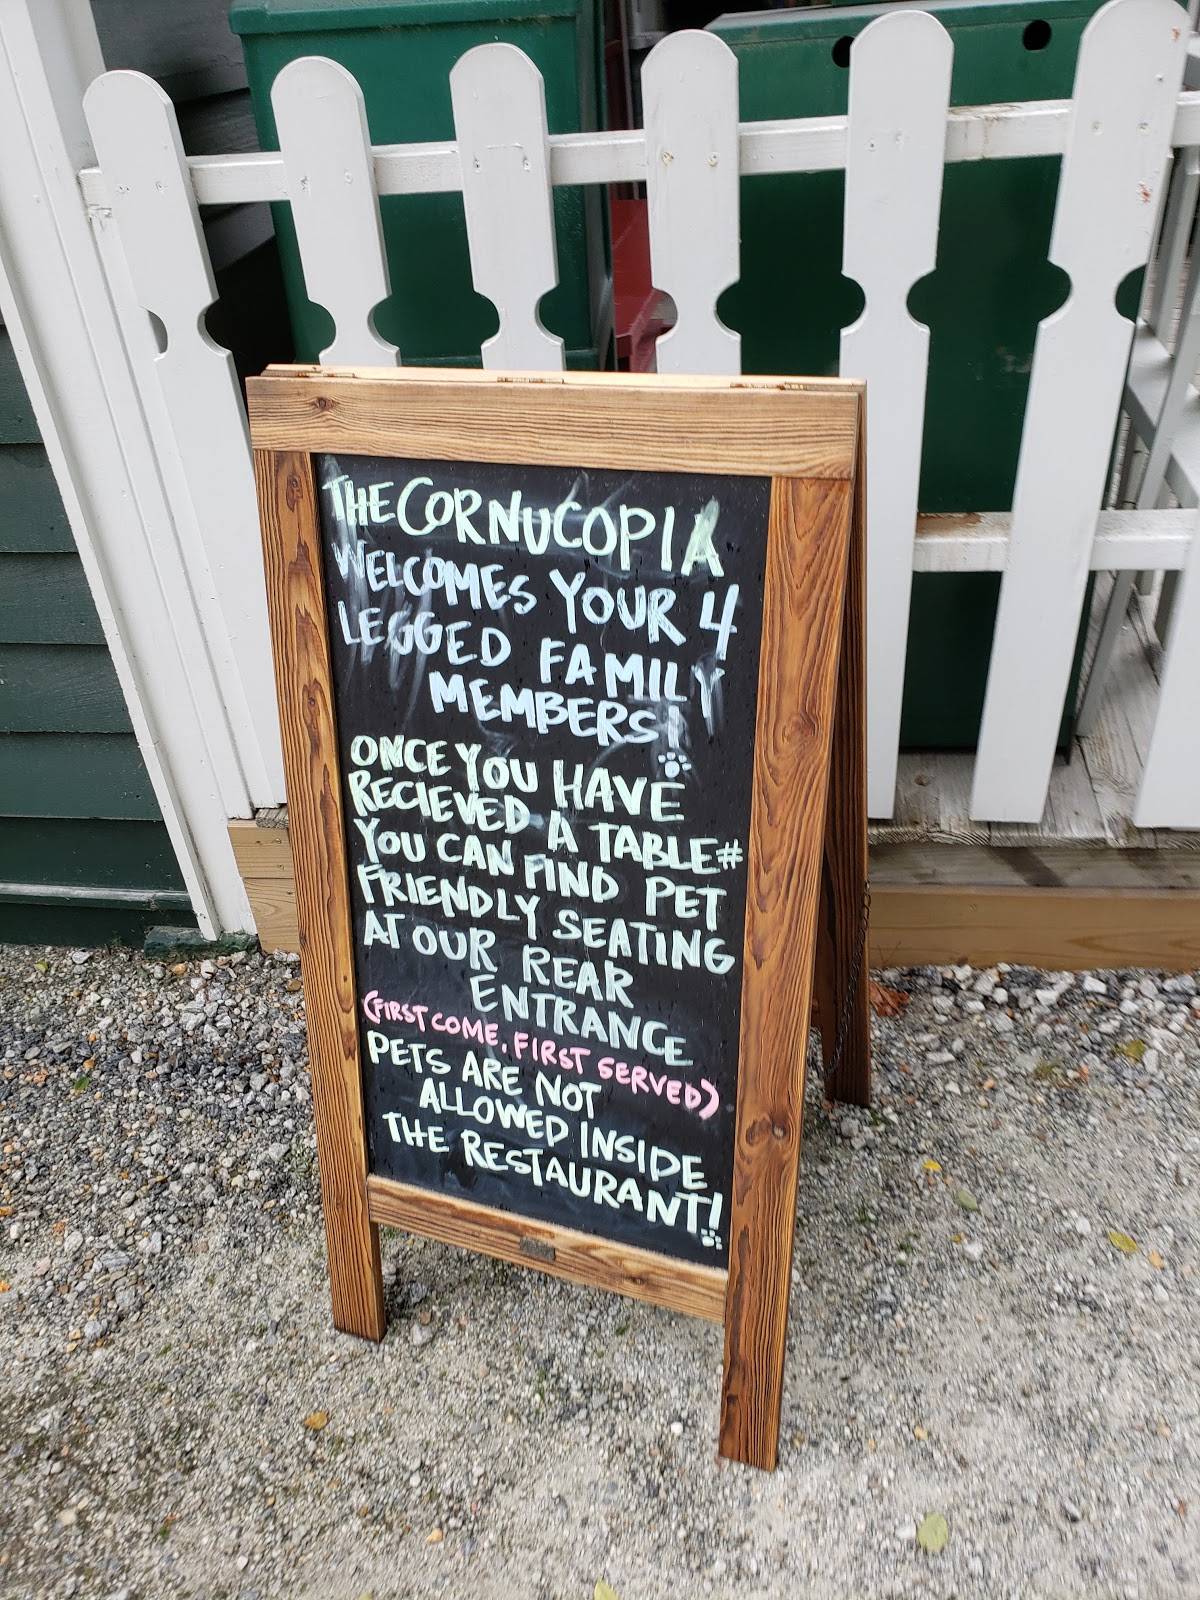 THE CORNUCOPIA
WELCOMES YOUR 4
LEGGED FAMILY
MEMBERS!
ONCE YOU HAVE
RECIEVED A TABLE#
YOU CAN FIND PET
FRIENDLY SEATING
AT OUR REAR
ENTRANCE
(FIRST COME, FIRST SERVED)
PETS ARE NOT
ALLOWED INSIDE
THE RESTAURANT!